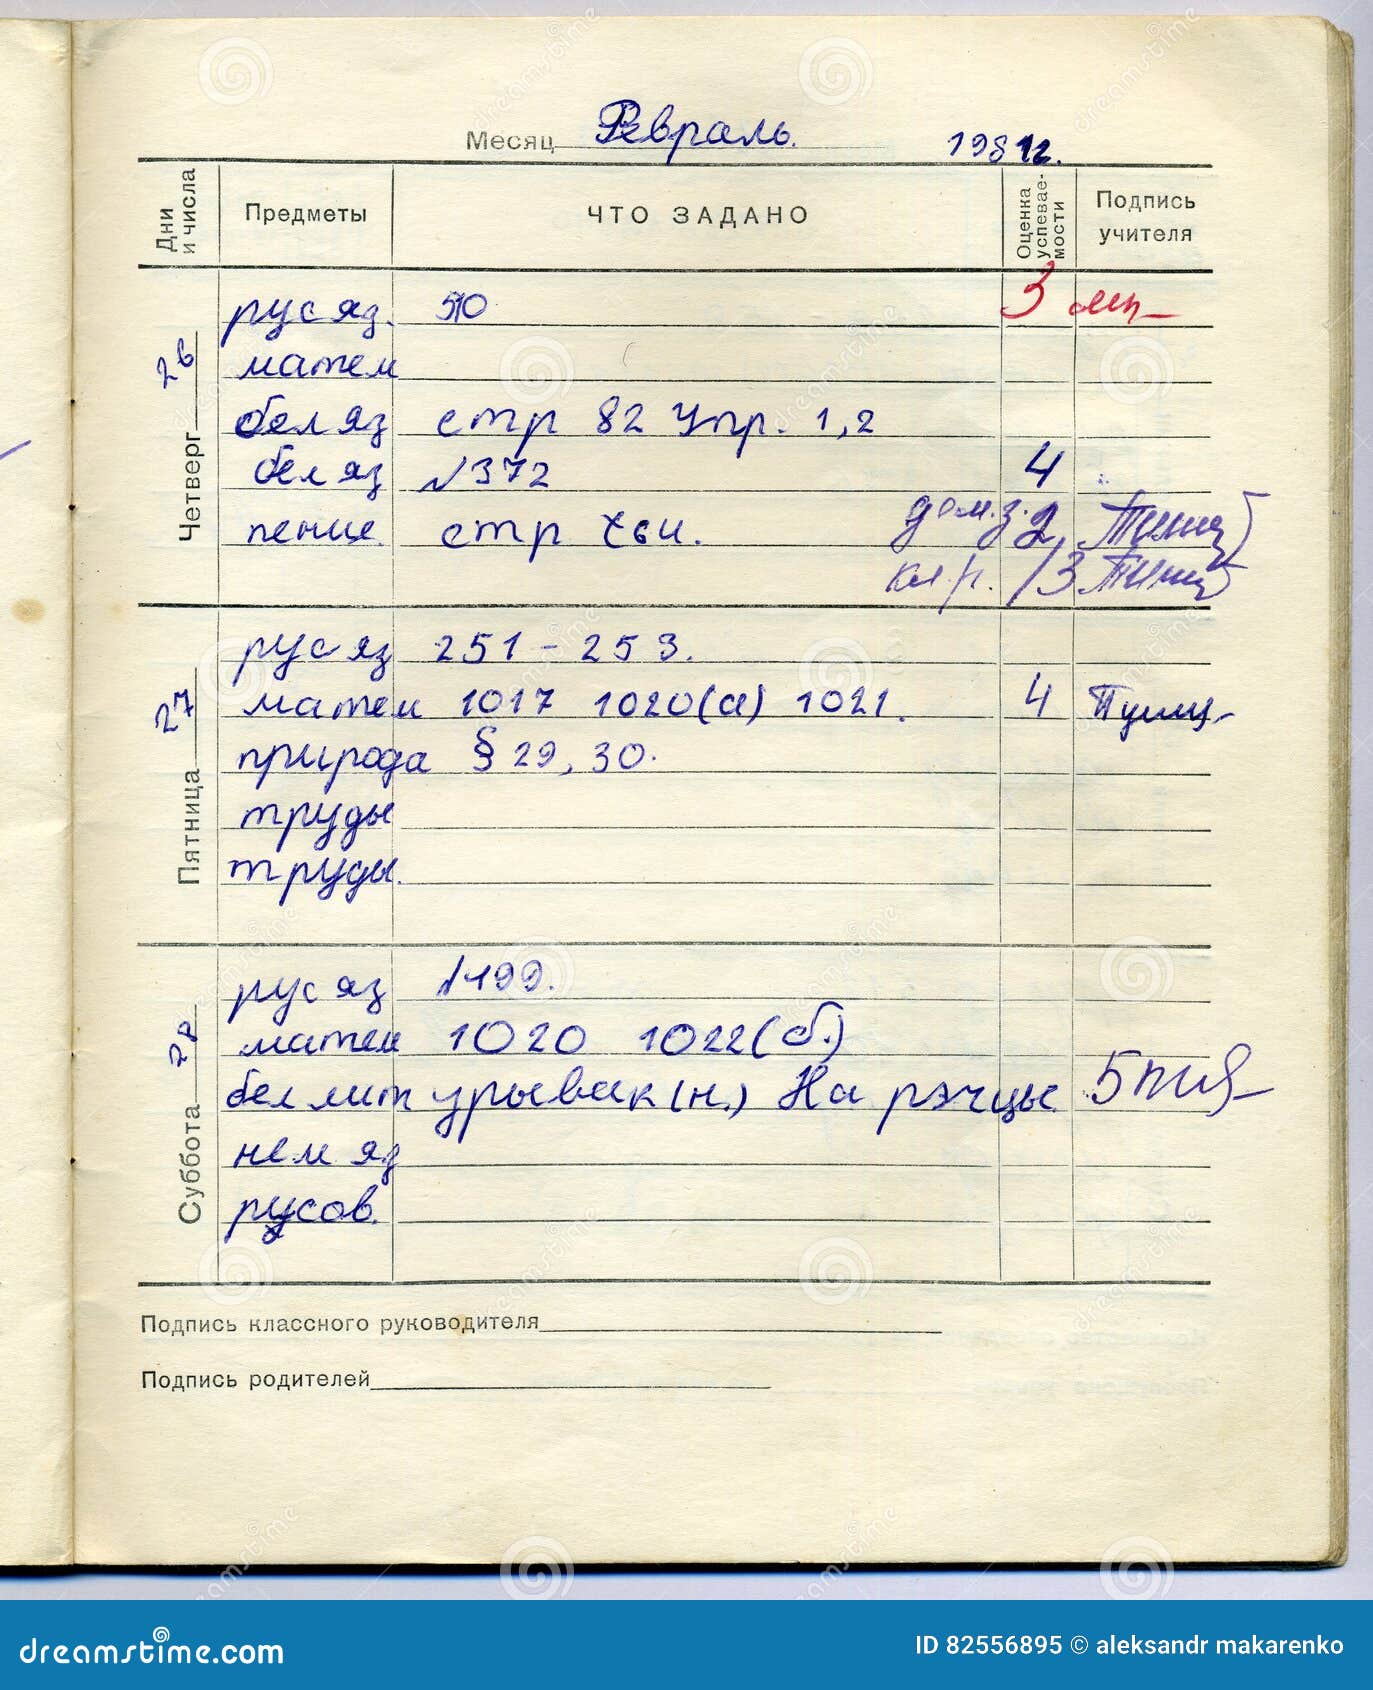 Месяц Февраль. 1981г.
Дни и числа Предметы ЧТО ЗАДАНО Оценка успевае-мости Подпись учителя
Четверг 26
рус яз. 510 3
матем
бел яз стр 82 Упр. 1,2
бел яз №372 4
пение стр дом.з. 2
кл.р. 3
Пятница 27
рус яз 251 - 253.
матем 1017 1020(а) 1021. 4
природа § 29, 30.
труды
труды.
Суббота 28
рус яз №499.
матем 1020 1022(б.)
бел лит урывак (н.) На рэчцы 5
нем яз
русов.
Подпись классного руководителя
Подпись родителей
dreamstime
ID 82556895 © aleksandr makarenko